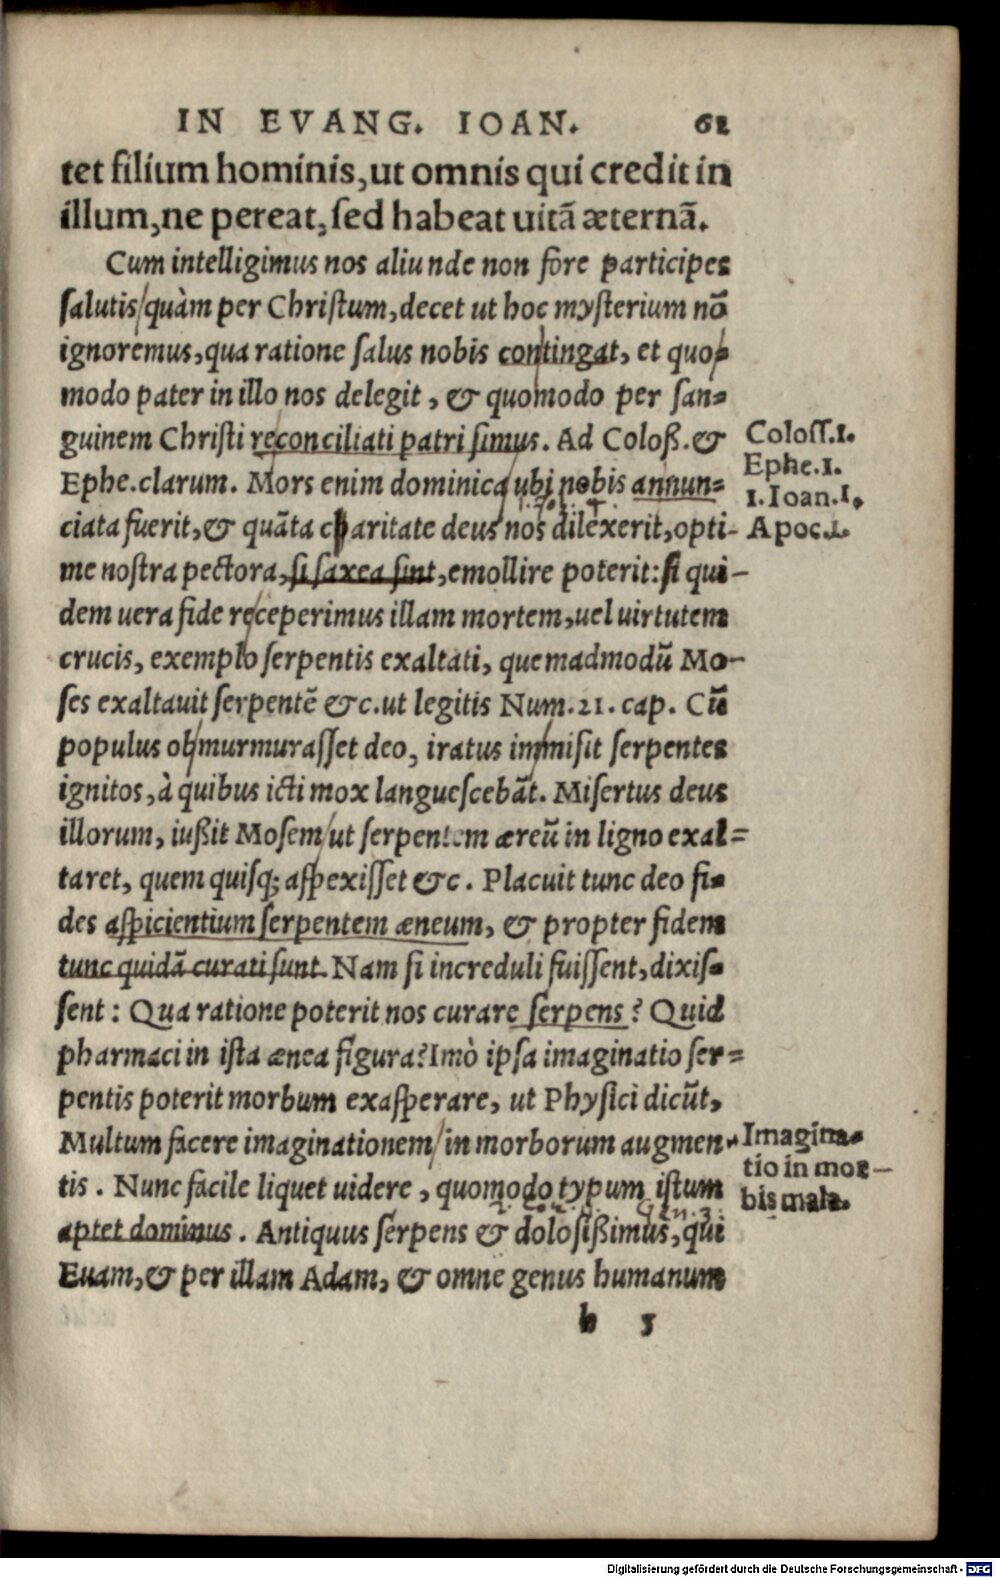 IN EVANG. IOAN. 61
tet filium hominis, ut omnis qui credit in
illum, ne pereat, sed habeat uitã æternã.
Cum intelligimus nos aliunde non fore participes
salutis quàm per Christum, decet ut hoc mysterium nõ
ignoremus, qua ratione salus nobis contingat, et quo-
modo pater in illo nos delegit, & quomodo per san-
guinem Christi reconciliati patri simus. Ad Coloß. &
Ephe. clarum. Mors enim dominica ubi nobis annun-
ciata fuerit, & quãta charitate deus nos dilexerit, opti-
me nostra pectora, si saxea sint, emollire poterit: si qui-
dem uera fide receperimus illam mortem, uel uirtutem
crucis, exemplo serpentis exaltati, quemadmodũ Mo-
ses exaltauit serpentẽ &c. ut legitis Num. 21. cap. Cũ
populus obmurmurasset deo, iratus immisit serpentes
ignitos, à quibus icti mox languescebãt. Misertus deus
illorum, iußit Mosem ut serpentem æreũ in ligno exal-
taret, quem quisq; aspexisset &c. Placuit tunc deo fi-
des aspicientium serpentem æneum, & propter fidem
tunc quidã curati sunt. Nam si increduli fuissent, dixis-
sent: Qua ratione poterit nos curare serpens? Quid
pharmaci in ista ænea figura? Imò ipsa imaginatio ser-
pentis poterit morbum exasperare, ut Physici dicũt,
Multum facere imaginationem in morborum augmen-
tis. Nunc facile liquet uidere, quomodo typum istum
aptet dominus. Antiquus serpens & dolosißimus, qui
Euam, & per illam Adam, & omne genus humanum
h 5
Coloss. 1.
Ephe. 1.
1. Ioan. 1.
Apoc. 1.
Imagina-
tio in mor-
bis mala.
Gen. 3.
Digitalisierung gefördert durch die Deutsche Forschungsgemeinschaft - DFG